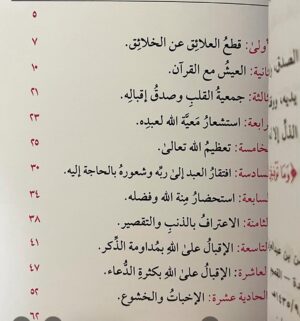 ٥
أولى: قطعُ العلائق عن الخلائق. ٧
ـانية: العيشُ مع القرآن. ١٠
ـالثة: جمعية القلب وصدقُ إقبالِه. ٢١
ـرابعة: استشعارُ مَعيَّة الله لعبدِه. ٢٣
ـخامسة: تعظيمُ الله تعالى. ٢٥
ـسادسة: افتقارُ العبد إلى ربِّه وشعورُه بالحاجة إليه. ٣٠
لسابعة: استحضارُ مِنة الله وفضله. ٣٤
لثامنة: الاعتراف بالذنبِ والتقصير. ٣٨
لتاسعة: الإقبال على اللهِ بمُداومة الذِّكر. ٤١
لعاشرة: الإقبال على اللهِ بكثرةِ الدُّعاء. ٤٧
لحادية عشرة: الإخباتُ والخشوع. ٥٢
٦٢
الصدق
يديه،
الذلّ